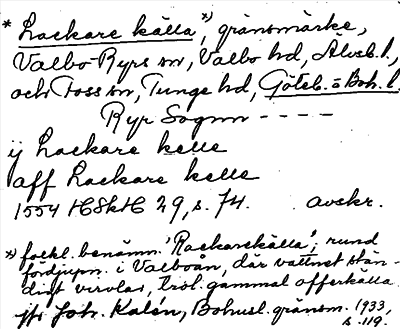 * Lackare källa *), gränsmärke,
Valbo-Ryrs sn, Valbo hd, Älvsb. l.,
och Foss sn, Tunge hd, Göteb. o Boh. l.
Ryr Sognn - - - -
ij Lackare kelle
aff Lackare kelle
1554 HSkH 29, s. 74. avskr.
*) folkl. benämn. 'Rackarekälla'; rund
fördjupn. i Valboån, där vattnet stän-
digt virvlar, trol. gammal offerkälla.
jfr Joh. Kalén, Bohusl. gränsm. 1933,
s. 119.